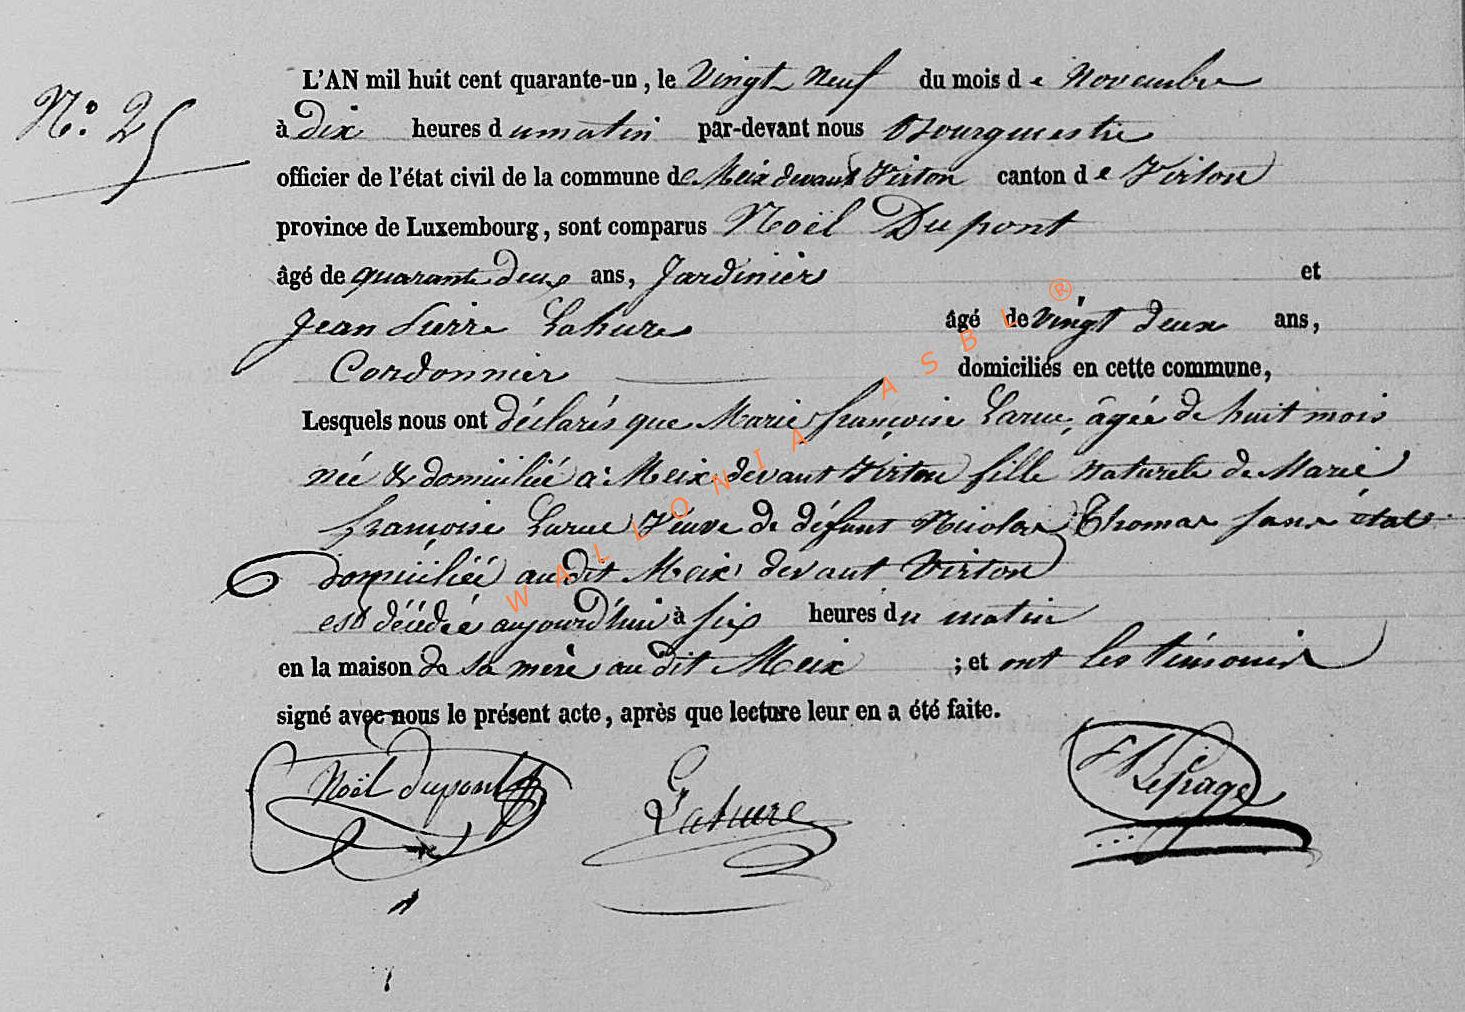 N.° 25
L'AN mil huit cent quarante-un, le Vingt Neuf du mois de Novembre
à Dix heures du matin par-devant nous Bourguestre
officier de l'état civil de la commune de Meix devant Virton canton de Virton
province de Luxembourg, sont comparus Noël Dupont
âgé de quarante deux ans, Jardinier et
Jean Pierre Lahure âgé de vingt deux ans,
Cordonnier domiciliés en cette commune,
Lesquels nous ont déclarés que Marie françoise Larue, âgée de huit mois
née & domiciliée à Meix devant Virton fille naturelle de Marie
françoise Larue Veuve de défunt Nicolas Thomas sans état
domiciliée audit Meix devant Virton
est décédée aujourd'hui à six heures du matin
en la maison de sa mère audit Meix ; et ont les témoins
signé avec nous le présent acte, après que lecture leur en a été faite.
Noël dupont Lahure Lepage
WALLONIA ASBL ®